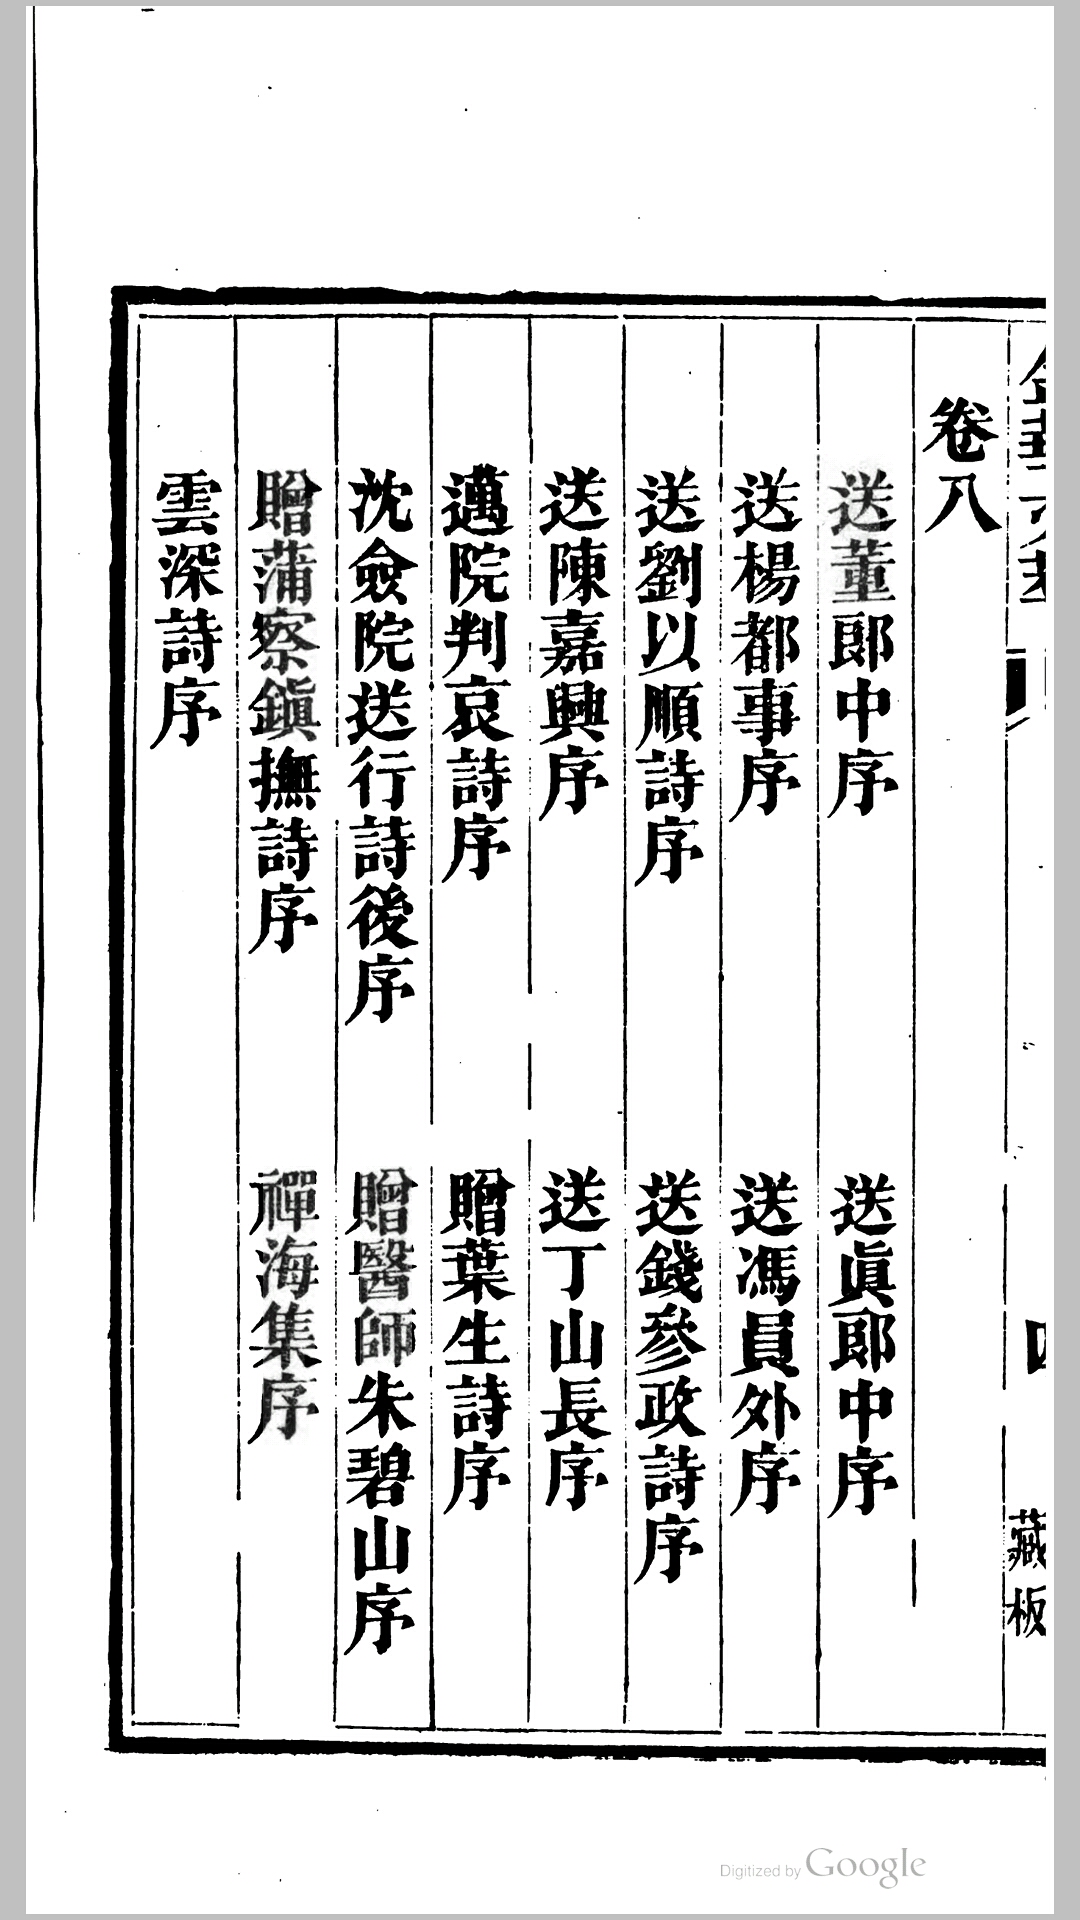 卷八
送董郎中序
送眞郎中序
送楊都事序
送馮員外序
送劉以順詩序
送錢參政詩序
送陳嘉興序
送丁山長序
邁院判哀詩序
贈葉生詩序
沈僉院送行詩後序
贈醫師朱碧山序
贈蒲察鎭撫詩序
禪海集序
雲深詩序
藏板
Digitized by Google